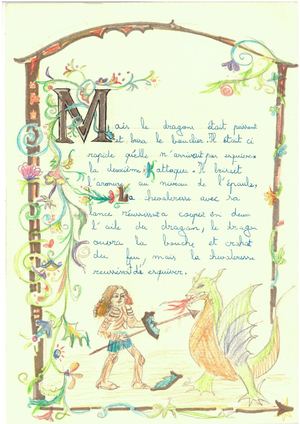 Mais le dragons était puissant
et brisa le bouclier. Il était si
rapide qu'elle n'arrivait pas esquiver
la deuxième Kattaque. Il brisait
l'armure au niveau de l'épaule,
La chevaleresse avec sa
lance réussissait a couper en deux
l'aile du dragon, le dragon
ouvra la bouche et crachat
du feu, mais la chevaleresse
reussissait esquiver.